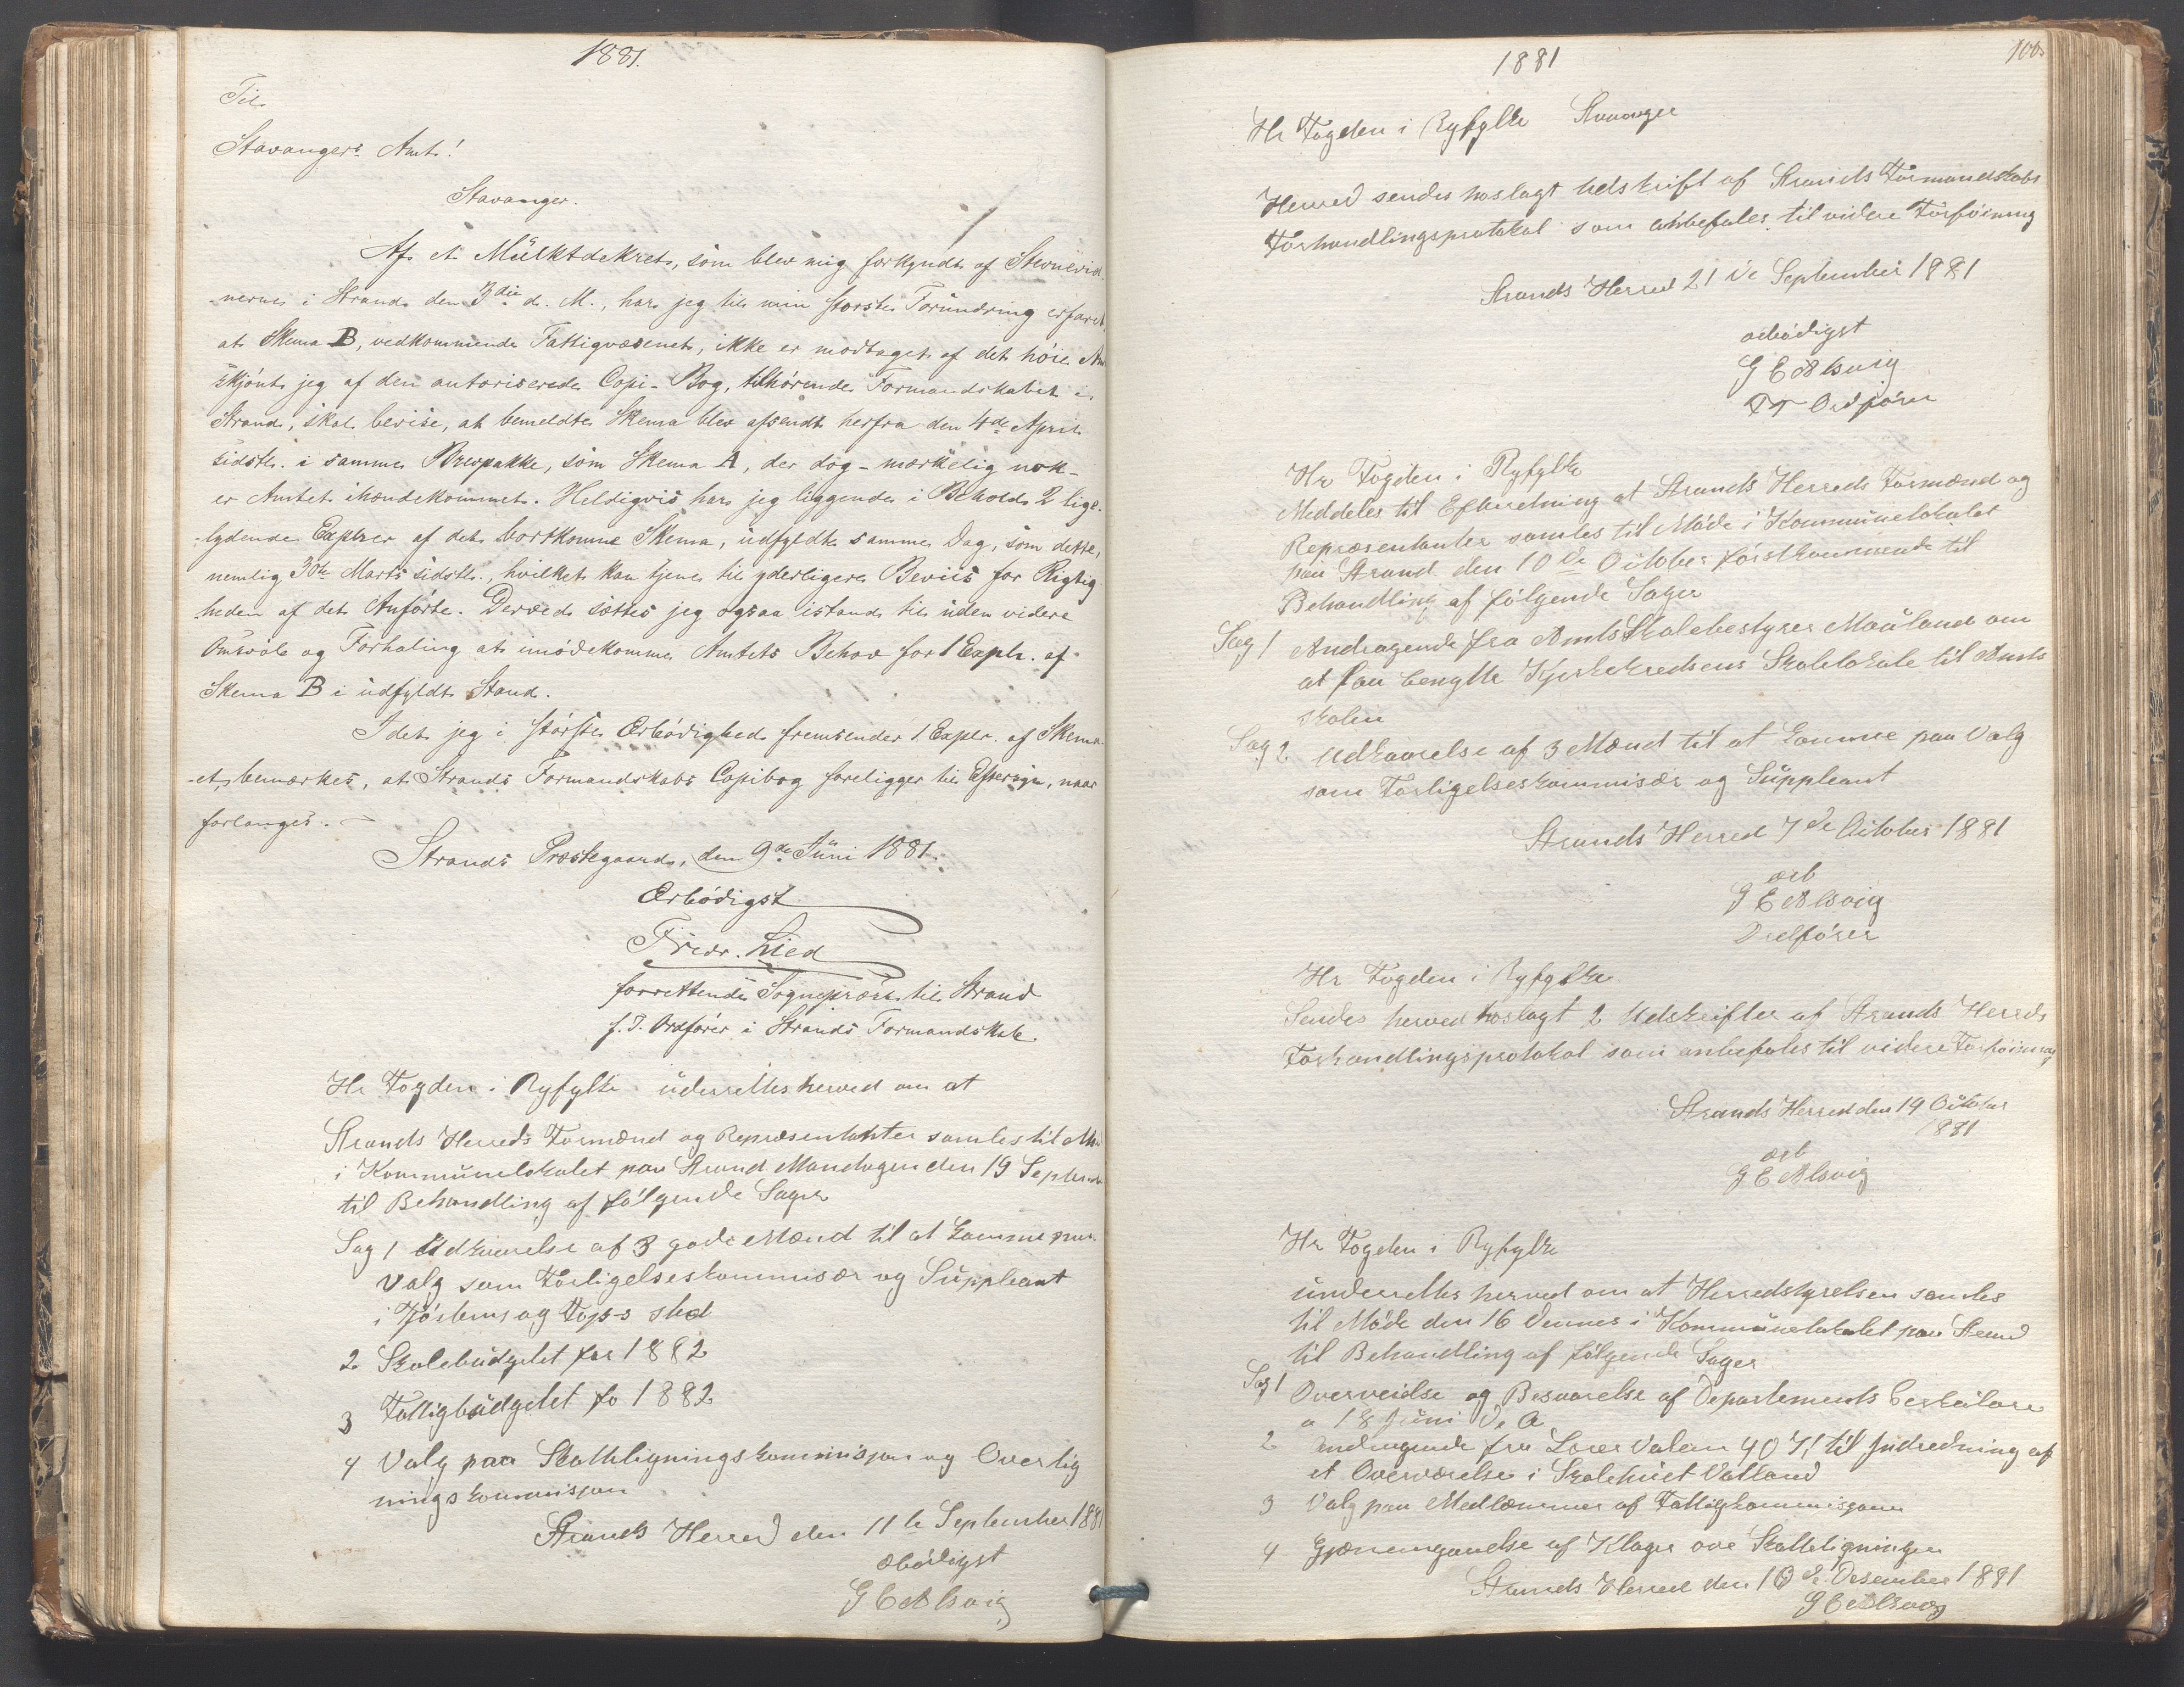 1881.
Til
Stavangers Amt!
Stavanger.
Af et Mülktdekret, som blev mig forkyndt af Stevnevid-
-nerne i Strand den 3die d. M., har jeg til min største Forundring erfaret,
at Skema B, vedkommende Fattigvæsenet, ikke er modtaget af det høie Am
skjønt jeg af den autoriserede Copi-Bog, tilhørende Formandskabet i
Strand, skal bevise, at bemeldte Skema blev afsendt herfra den 4de April
sidstl. i samme Brevpakke, som Skema A, der dog - mærkelig nok -
er Amtet ihændekommet. Heldigvis har jeg liggende i Behold 2 lige-
-lydende Explrer af det bortkomne Skema, udfyldt samme Dag, som dette,
nemlig 30te Marts sidstl., hvilket kan tjene til yderligere Beviis for Rigtig
heden af det Anførte. Derved sættes jeg ogsaa istand til uden videre
Omsvøb og Forhaling at imødekomme Amtets Behov for 1 Explr. af
Skema B i udfyldt Stand.
Idet jeg i største Ærbødighed fremsender 1 Explr. af Skema-
-et, bemærkes, at Strands Formandskabs Copibog foreligger til Eftersyn, naar
forlanges. —
Strands Præstegaard, den 9de Juni 1881.
Ærbødigst
Fredr. Lied
forrettende Sognepræst til Strand
f. T. Ordfører i Strands Formandskab.
Hr Fogden i Ryfylke underrettes herved om at
Strands Herreds Formænd og Repræsentanter samles til Mø
i Kommunelokalet paa Strand Mandagen den 19 September
til Behandling af følgende Sager
Sag 1 Udkaarelse af 3 gode Mænd til at komme paa
Valg som Forligelseskommisær og Suppleant
i Tjøstems og sted
2 Skolebudgetet for 1882
3 Fattigbudgetet fo 1882
4 Valg paa Skatteligningskommisjon og Overlig
ningskommisjon
Strands Herred den 11te September 1881
æbødigst
G E Alsvig
1881
100
Hr Fogden i Ryfylke Stavanger
Herved sendes hoslagt Udskrift af Strands Formandskabs
Forhandlingsprotokol som anbefales til videre Forføining
Strands Herred 21 de September 1881
æbødigst
G E Alsvig
Ordfører
Hr Fogden i Ryfylke
Meddeles til Efterretning at Strands Herreds Formænd og
Repræsentanter samles til Møde i Kommunelokalet
paa Strand den 10 de October førstkommende til
Behandling af følgende Sager
Sag 1 Andragende fra AmtsSkolebestyrer Mauland om
at faa benytte Kyrkekredsens Skolelokale til Amts
skolen
Sag 2 Udkaarelse af 3 Mænd til at komme paa Valg
som Forligelseskommisær og Suppleant
Strands Herred 7 de October 1881
ærb
G E Alsvig
Ordfører
Hr Fogden i Ryfylke
Sendes herved hoslagt 2 Udskrifter af Strands Herreds
Forhandlingsprotokol som anbefales til videre Forføining
Strands Herred den 14 October
1881
ærb
G E Alsvig
Hr Fogden i Ryfylke
underrettes herved om at Herredstyrelsen samles
til Møde den 16 dennes i Kommunelokalet paa Strand
til Behandling af følgende Sager
Sag 1 Overveielse og Besvarelse af Departements
a 18 Juni d. A
2 Andragende fra 40 til Indredning af
et Overværelse i Skolehuset Vatland
3 Valg paa Medlemmer af Fattigkommisjonen
4 Gjennemgaaelse af Klager ove Skatteligningen
Strands Herred den 10 de Desember 1881
G E Alsvig